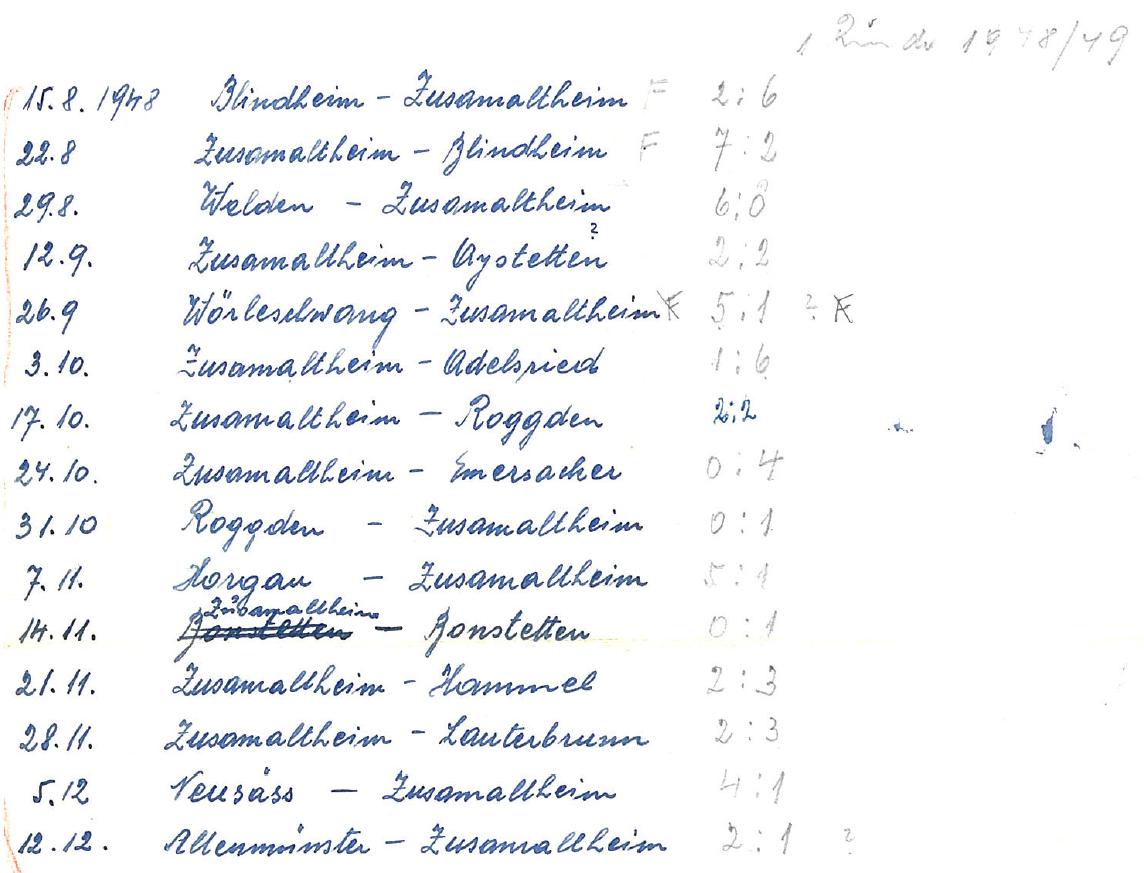 1 Runde 1948/49
15.8.1948 Blindheim - Zusamaltheim F 2:6
22.8 Zusamaltheim - Blindheim F 7:2
29.8. Welden - Zusamaltheim 6:0
?
12.9. Zusamaltheim - Aystetten 2:2
26.9 Wörleschwang - Zusamaltheim F 5:1 ? F
3.10. Zusamaltheim - Adelsried 1:6
17.10. Zusamaltheim - Roggden 2:2
24.10. Zusamaltheim - Emersacker 0:4
31.10 Roggden - Zusamaltheim 0:1
7.11. Horgau - Zusamaltheim 5:1
Zusamaltheim
14.11. Bonstetten - Bonstetten 0:1
21.11. Zusamaltheim - Hammel 2:3
28.11. Zusamaltheim - Lauterbrunn 2:3
5.12 Neusäss - Zusamaltheim 4:1
12.12. Altenmünster - Zusamaltheim 2:1 ?